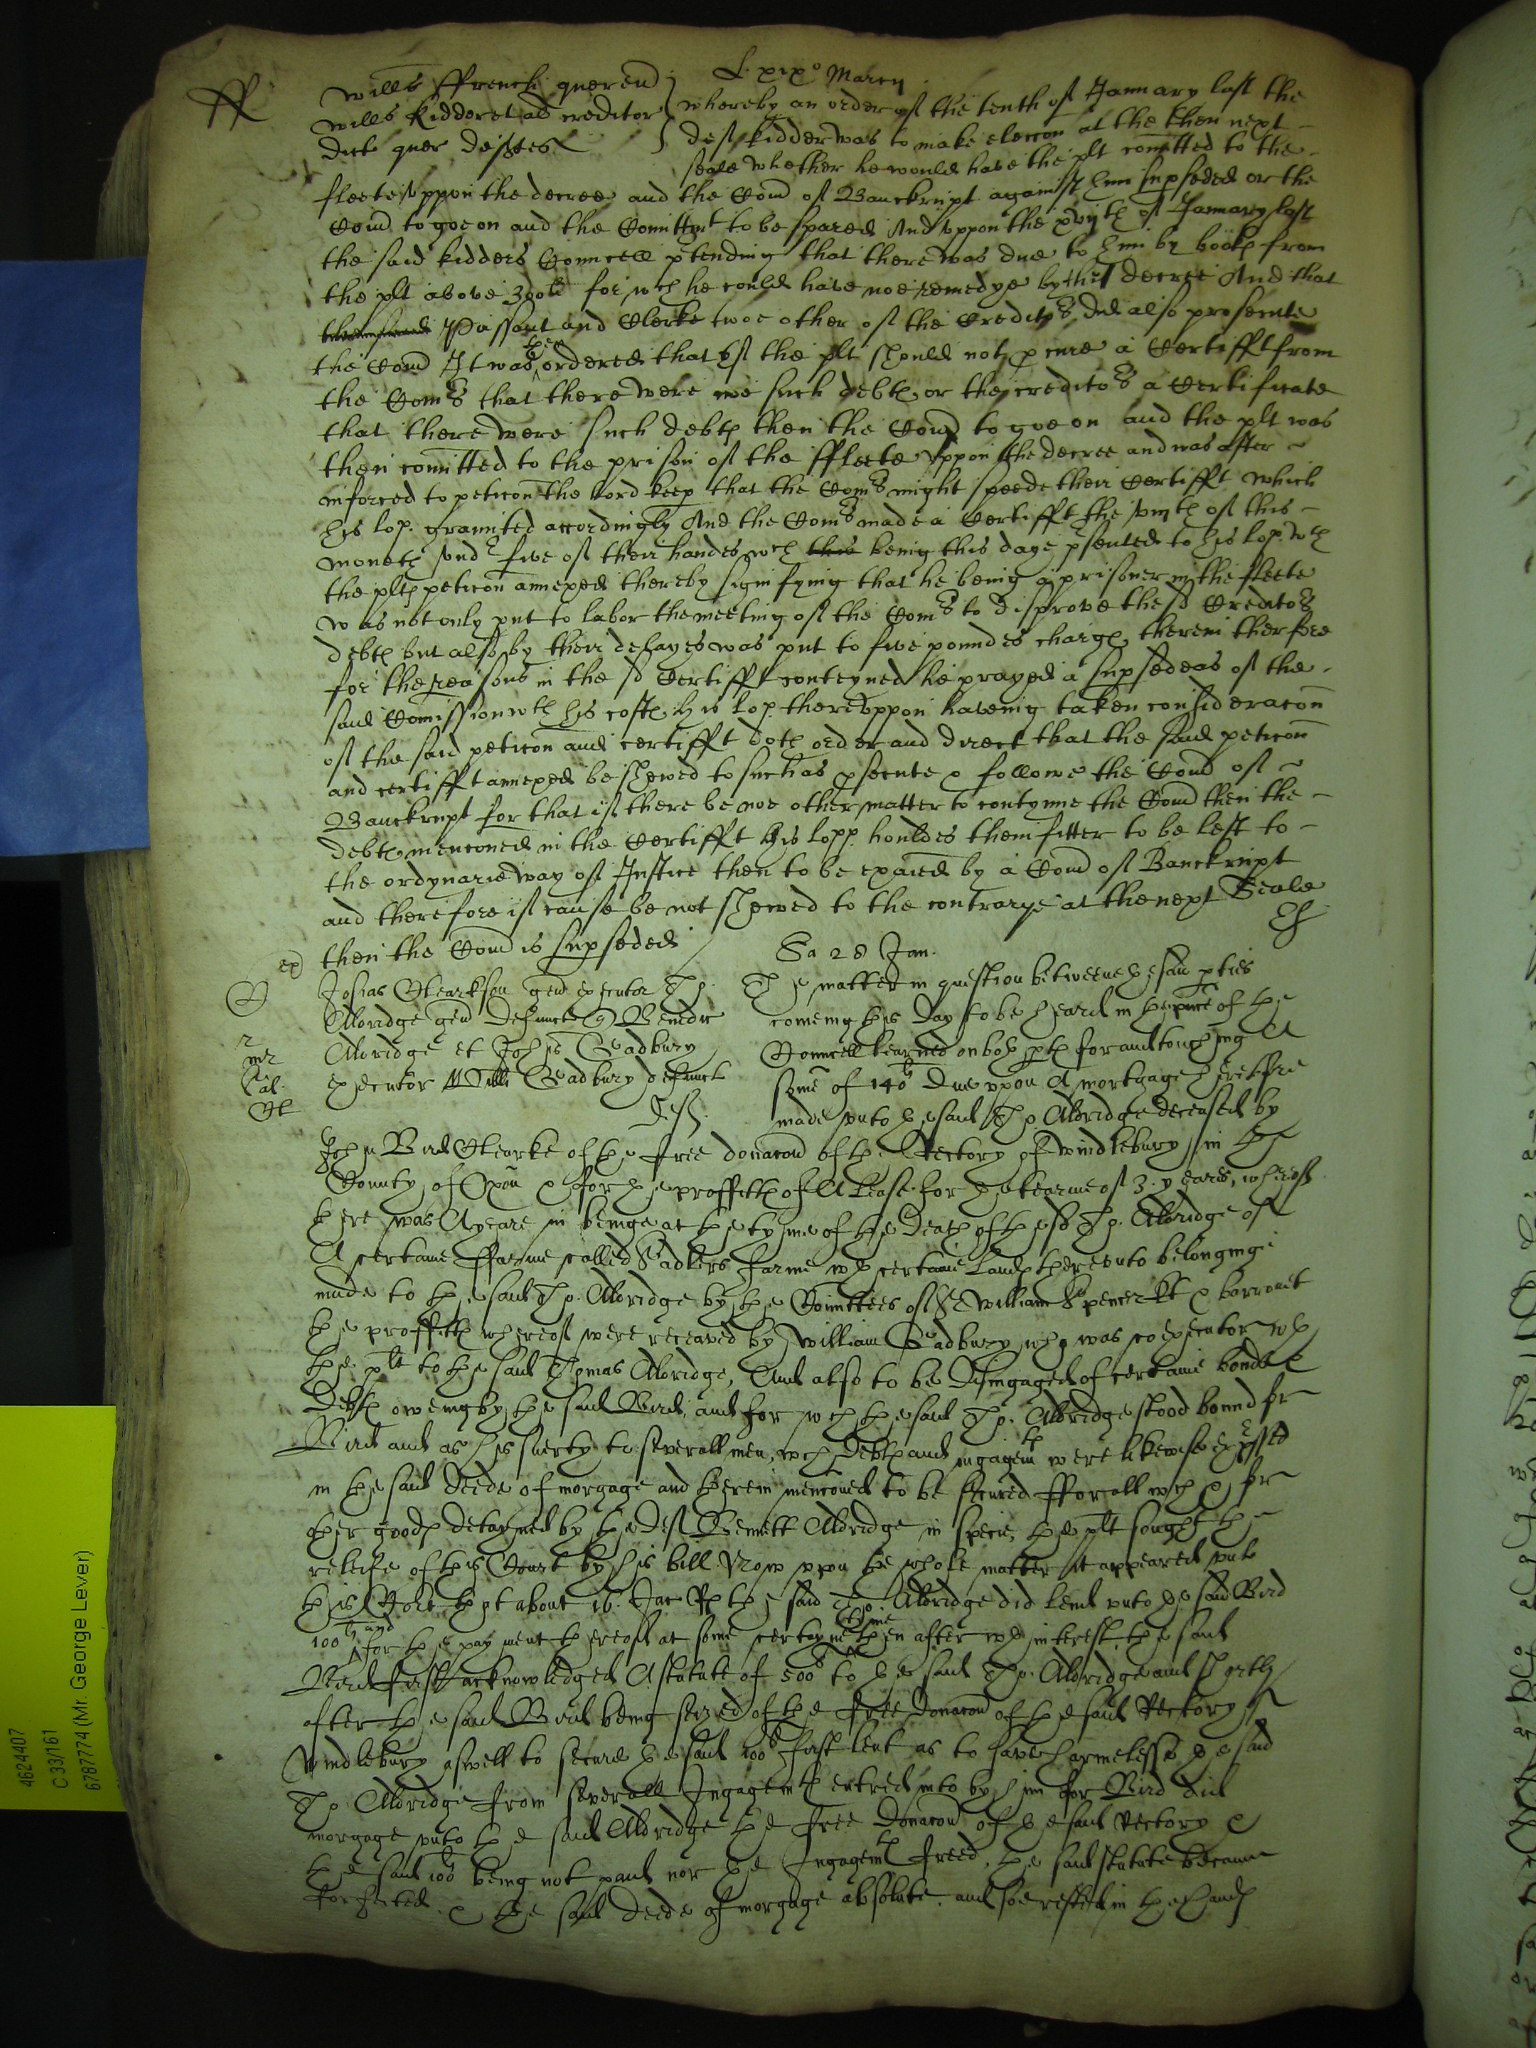 L. xixo Marcij
ff
Willms ffrench quer end
Willms Kidder et al creditor
dict quer defts
Whereby an order of the tenth of January last the
deft Kidder was to make eleccon at the then next
seale whether he would have the plt comitted to the
fleete uppon the decree and the Comd of Banckrupt against him supseded or the
Comd to goe on and the Comittmt to be spared And uppon the xviijth of January last
the said Kidders Councell ptending that there was due to him by books from
the plt above 300li for wch he could have noe remedye by the decree And that
Passant and Clerke twoe other of the Creditrs did also prosecute
the Comd It was then ordered that if the plt should not pcure a Certifft from
the Comrs that there were noe such debts or the creditors a Certificate
that there were such debts then the Comd to goe on and the plt was
then comitted to the prison of the ffleete uppon the decree and was after
inforced to peticon the Lord keep that the Comrs might speede their Certifft which
his lop. graunted accordingly And the Comrs made a Certifft the of this
moneth undr five of their handes wch this being this daye psented to his lop. wth
the plts peticon annexed thereby signifying that he being a prisoner in the fleete
was not only put to labor the meeting of the Comrs to disprove the sd Creditors
debts but also by their delayes was put to five poundes charge therein therfore
for the reasons in the sd Certifft conteyned he prayed a supsedeas of the
said Comission wth his costs His lop. thereuppon haveing taken consideracon
of the said peticon and certifft doth order and direct that the said peticon
and certifft annexed be shewed to such as psecute & followe the Comd of
Banckrupt for that if there be noe other matter to contynue the Comd then the
debts menconed in the Certifft his lopp. houldes them fitter to be left to
the ordynarie way of Justice then to be expaied by a Comd of Banckrupt
and therefore if cause be not shewed to the contrarye at the next Seale
then the Comd is supseded
Sa 28 Jan.
ex
Josias Clearkson gen executor Tho.
Aldridge gen defunct Benedic
Aldridge et Johis Cadbury
executor Willi Cadbury defunct
deft.
The matter in question betweene the said pties
comeing this day to be heard in the pnce of the
Councell learned on both pts for and touching A
some of 140li due uppon A mortgage heretofre
made unto the said Tho Aldridge deceased by
John Bird Clearke of the free donacon of the Rectory of Windlebury in the
County of Oxon & for the proffitts of A Lease for the tearme of 3. yeares, whereof
there was A yeare in beinge at the tyme of the death of the sd Tho. Aldridge of
A certaine ffarme called Sadlers farme wth certaine Lands thereunto belonging
made to the said Tho. Aldridge by the Comittees of Sr William Spencer Kt & barronet
the proffitts whereof were receaved by William Cadbury who was coexecutor wth
the plt to the said Thomas Aldridge, And also to be disingaged of certaine bonds &
debts oweing by the said Bird, and for wch the said Tho. Aldridge stood bound for
Bird and as his suerty to severall men, wch debts and ingagemts were likewise expssed
in the said deede of morgage and therein menconed to be secured ffor all wch & for
other goods detayned by the deft Bennett Aldridge in specie, the plt sought the
releife of this Court by his bill. Now uppon the whole matter it appeared unto
this Court that about 16. Jac Rs the said Tho. Aldridge did lend unto the said Bird
100li and for the payment thereof at some certayne tyme then after wth interest, the said
Bird first acknowledged A statute of 500li to the said Tho. Aldridge and shortly
after the said Bird being seized of the free donacon of the said Rectory of
Windlebury aswell to secure the said 100li first lent as to save harmelesse the said
Tho Aldridge from severall Ingagemts entred into by him for Bird did
morgage unto the said Aldridge the free donacon of the said Rectory &
the said 100li being not paid nor the Ingagemts freed, the said statute became
forfeited & the said deede of morgage absolute, and soe rested in the hands
4624407
C 33/161
6787774 (Mr. George Lever)